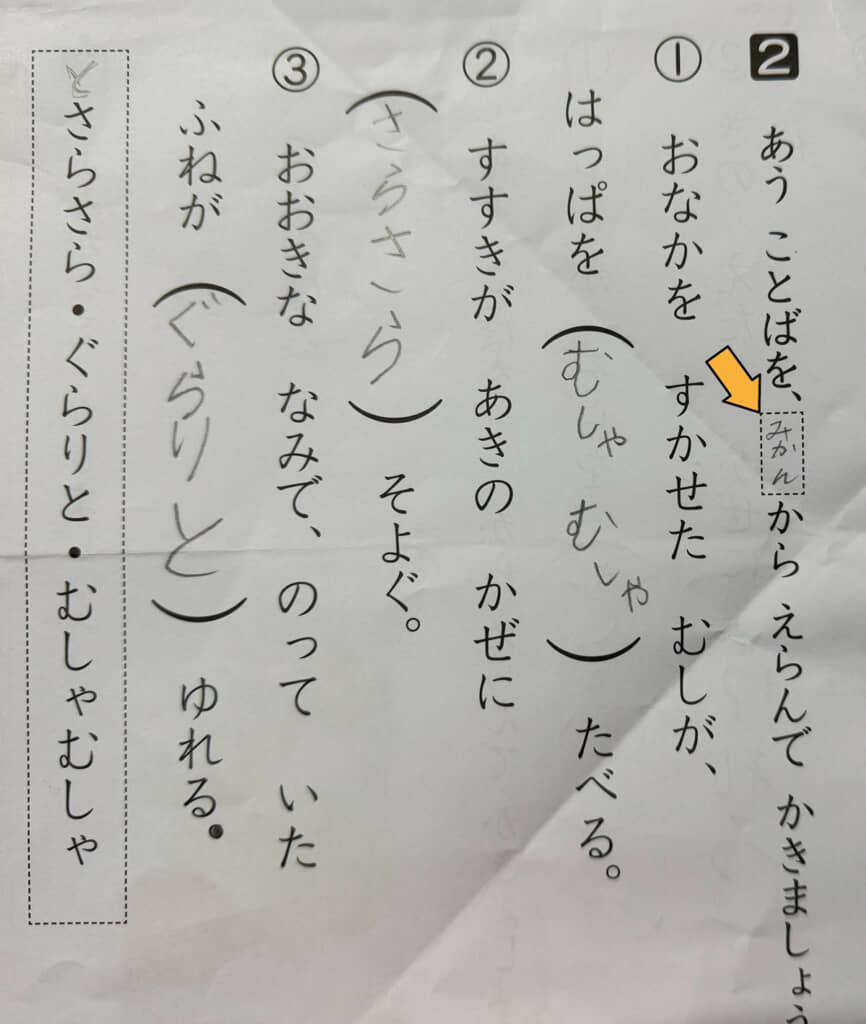 2 あう ことばを、みかんから えらんで かきましょう
① おなかを すかせた むしが、
はっぱを (むしゃむしゃ) たべる。
② すすきが あきの かぜに
(さらさら) そよぐ。
③ おおきな なみで、のって いた
ふねが (ぐらりと) ゆれる。
とさらさら・ぐらりと・むしゃむしゃ